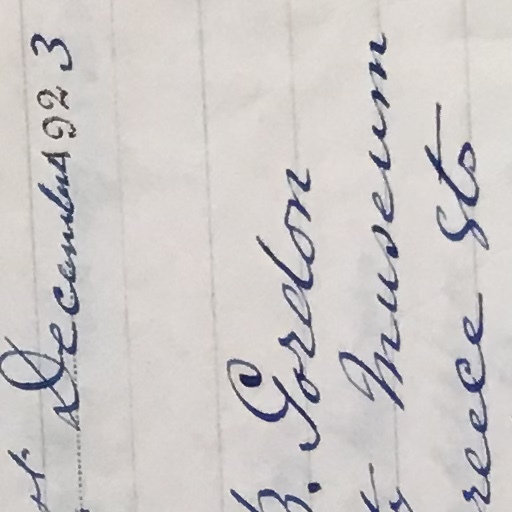 December 1923
B. Gordon
Museum
reece Sts